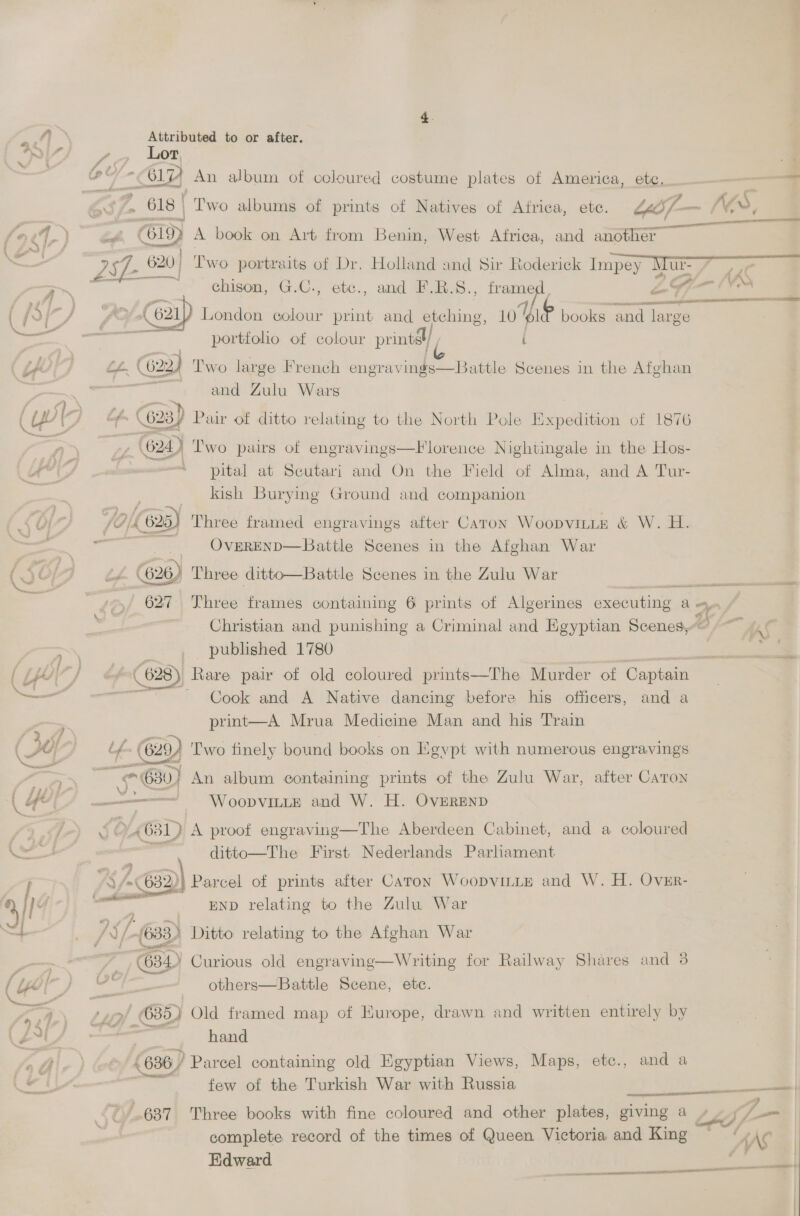 4
Attributed to or after.
Lot
617 An album of coloured costume plates of America, etc.
618 Two albums of prints of Natives of Africa, etc.
619 A book on Art from Benin, West Africa, and another
620 Two portraits of Dr. Holland and Sir Roderick Impey Mur-
chison, G.C., etc., and F.R.S., framed
621 London colour print and etching, 10 old books and large
portfolio of colour prints
622 Two large French engravings—Battle Scenes in the Afghan
and Zulu Wars
623 Pair of ditto relating to the North Pole Expedition of 1876
624 Two pairs of engravings—Florence Nightingale in the Hos-
pital at Scutari and On the Field of Alma, and A Tur-
kish Burying Ground and companion
625 Three framed engravings after Caton Woodville & W. H.
Overend—Battle Scenes in the Afghan War
626 Three ditto—Battle Scenes in the Zulu War
627 Three frames containing 6 prints of Algerines executing a
Christian and punishing a Criminal and Egyptian Scenes,
published 1780
628 Rare pair of old coloured prints—The Murder of Captain
Cook and A Native dancing before his officers, and a
print—A Mrua Medicine Man and his Train
629 Two finely bound books on Egypt with numerous engravings
630 An album containing prints of the Zulu War, after Caton
Woodville and W. H. Overend
631 A proof engraving—The Aberdeen Cabinet, and a coloured
ditto—The First Nederlands Parliament
632 Parcel of prints after Caton Woodville and W. H. Over-
end relating to the Zulu War
633 Ditto relating to the Afghan War
634 Curious old engraving—Writing for Railway Shares and 3
others—Battle Scene, etc.
635 Old framed map of Europe, drawn and written entirely by
hand
636 Parcel containing old Egyptian Views, Maps, etc., and a
few of the Turkish War with Russia
637 Three books with fine coloured and other plates, giving a
complete record of the times of Queen Victoria and King
Edward